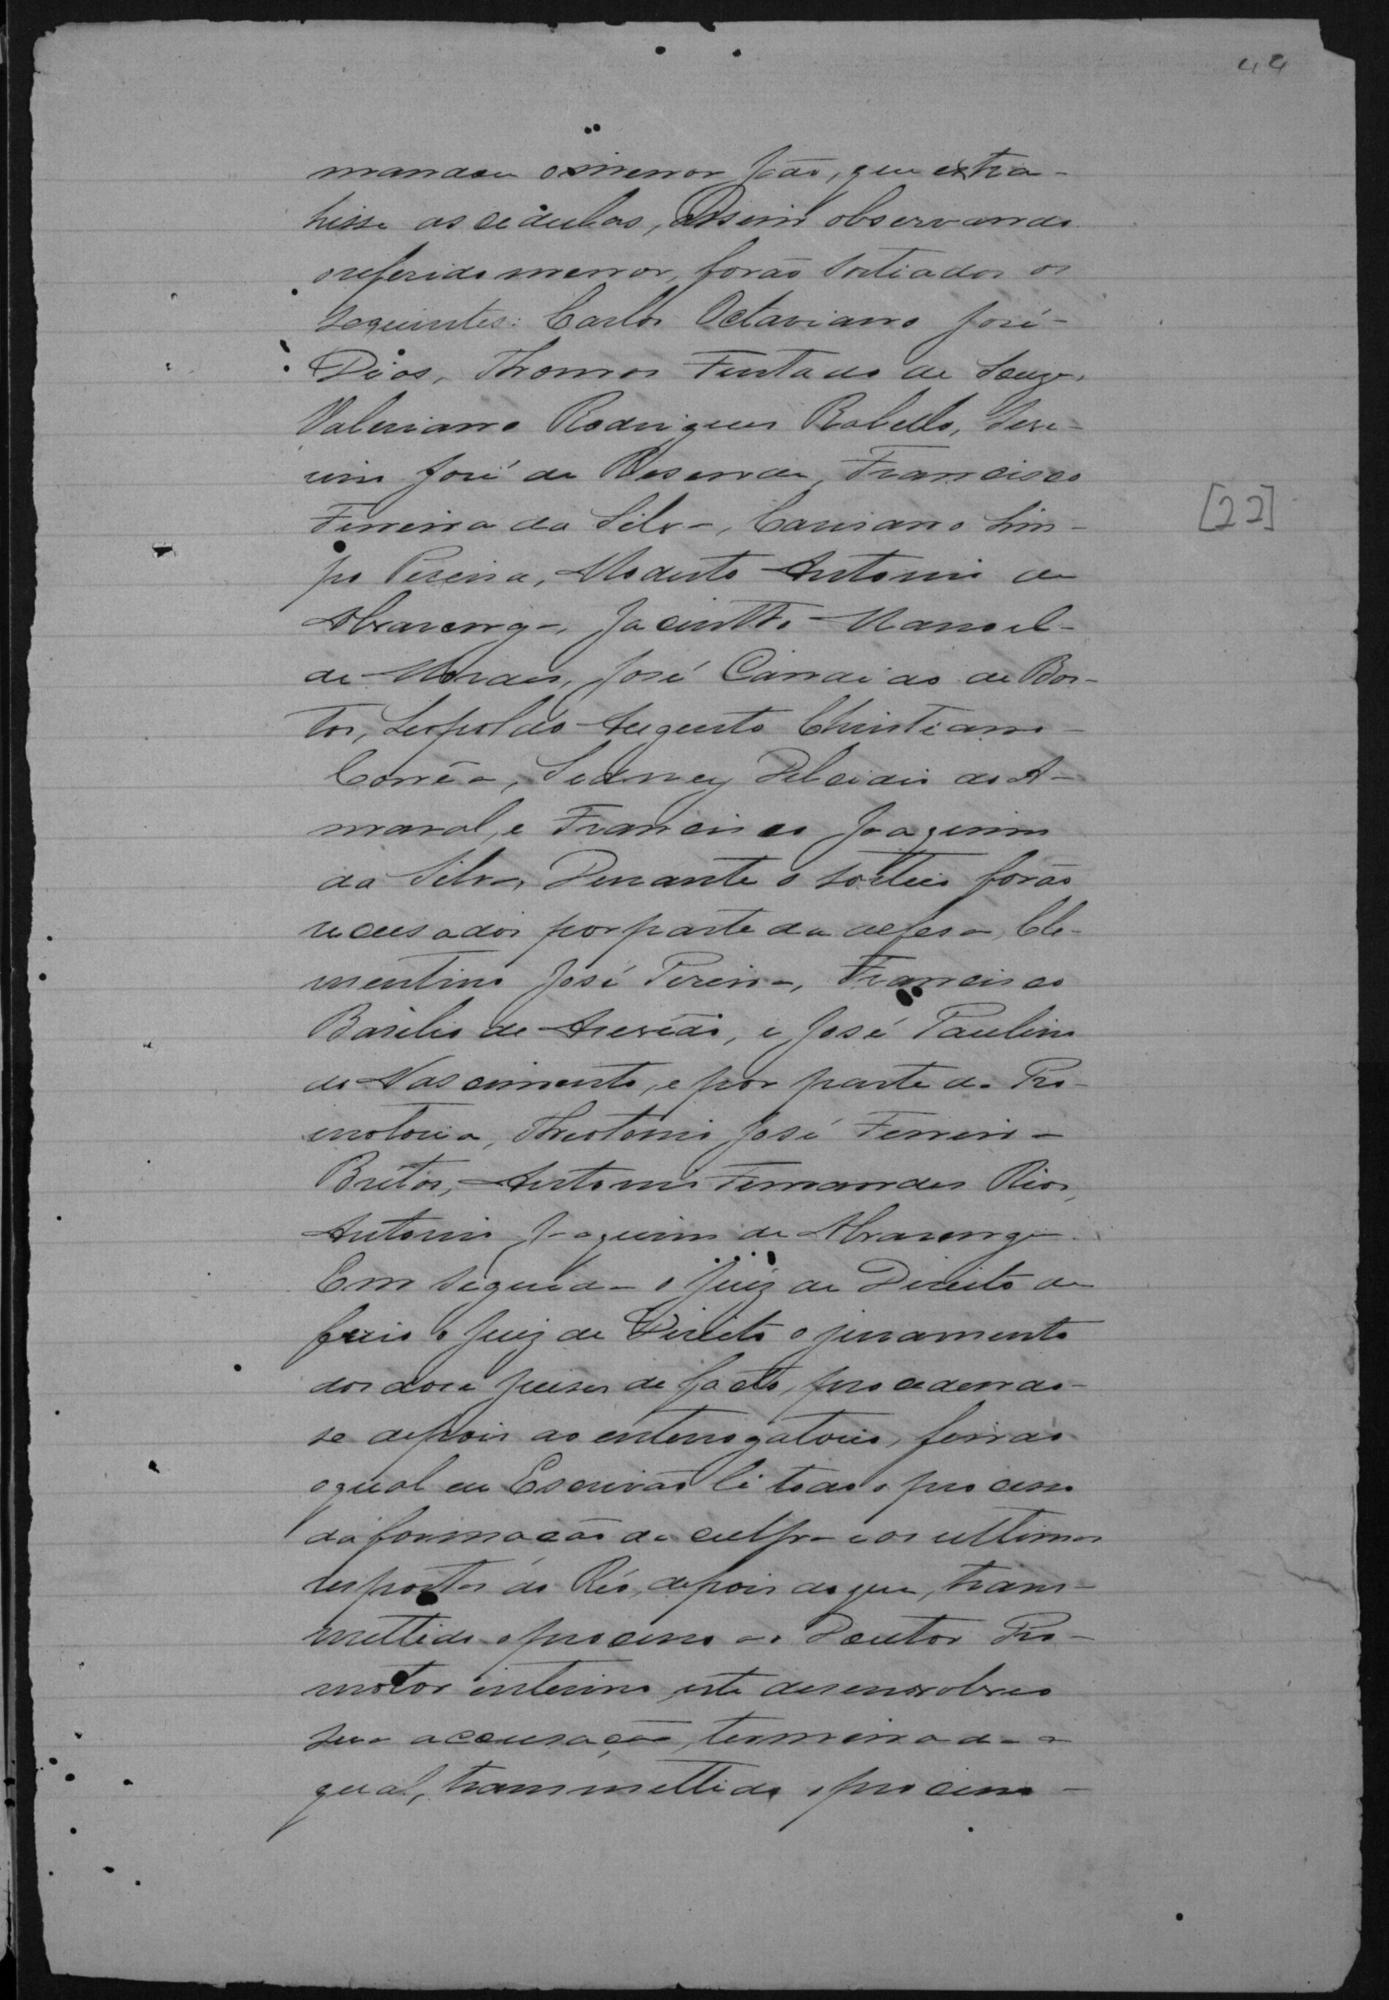 44
mandou o menor João, que extra-
hisse as cedulas, Assim observando
o referido menor, forão sorteados os
seguintes: Carlos Octaviano José
Dias, Thomas Furtado de Souza,
Valeriano Rodrigues Rabello, Sera-
fim José de Resende, Francisco
Ferreira da Silva, Cassiano
Pereira, Modesto Antonio de
Alvarenga, Jacintho Manoel
de Moraes, José Candido de Bas-
tos, Leopoldo Augusto Christiano
Corrêa, Sidney Delcidio do A-
maral, e Francisco Joaquim
da Silva, Durante o sorteio forão
recusados por parte da defesa, Cle-
mentino José Pereira, Francisco
Basilio de Azevedo, e José Paulino
do Nascimento, e por parte da Pro-
motoria, Theotonio José Ferreira
Brittos, Antonio Fernandes Rios,
Antonio Joaquim de Alvarenga.
Em seguida o Juiz de Direito de
firio o Juiz de Direito o juramento
dos doze Juises de facto, procedendo-
se depois ao enterrogatorio, findo
o qual eu Escrivão li todo o processo
da formação da culpa e as ultimas
respostas do Réo, depois do que, trans-
mettido o processo ao Doutor Pro-
motor interino, este desenvolveo
sua accusação, terminada a
qual, transmettido o processo
[22]